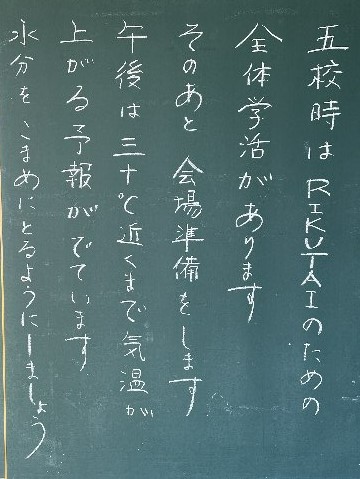 五校時は RIKUTAIのための
全体学活があります
そのあと 会場準備をします
午後は 三十℃近くまで気温が
上がる予報がでています
水分を こまめにとるようにしましょう